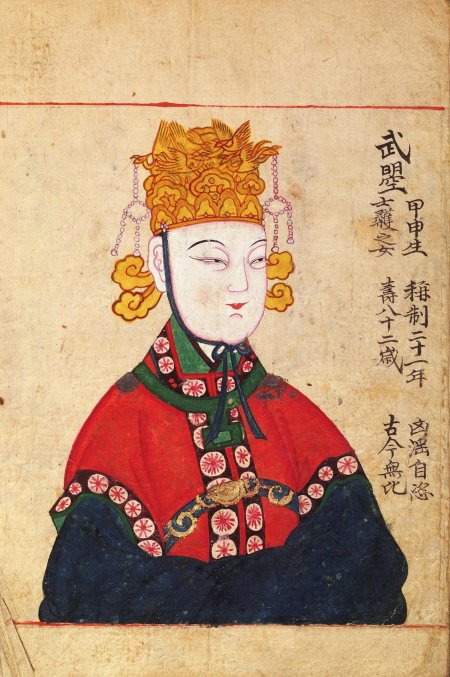 武曌
甲申生
士彠之女
稱制二十一年
壽八十二歲
凶淫自恣
古今無比